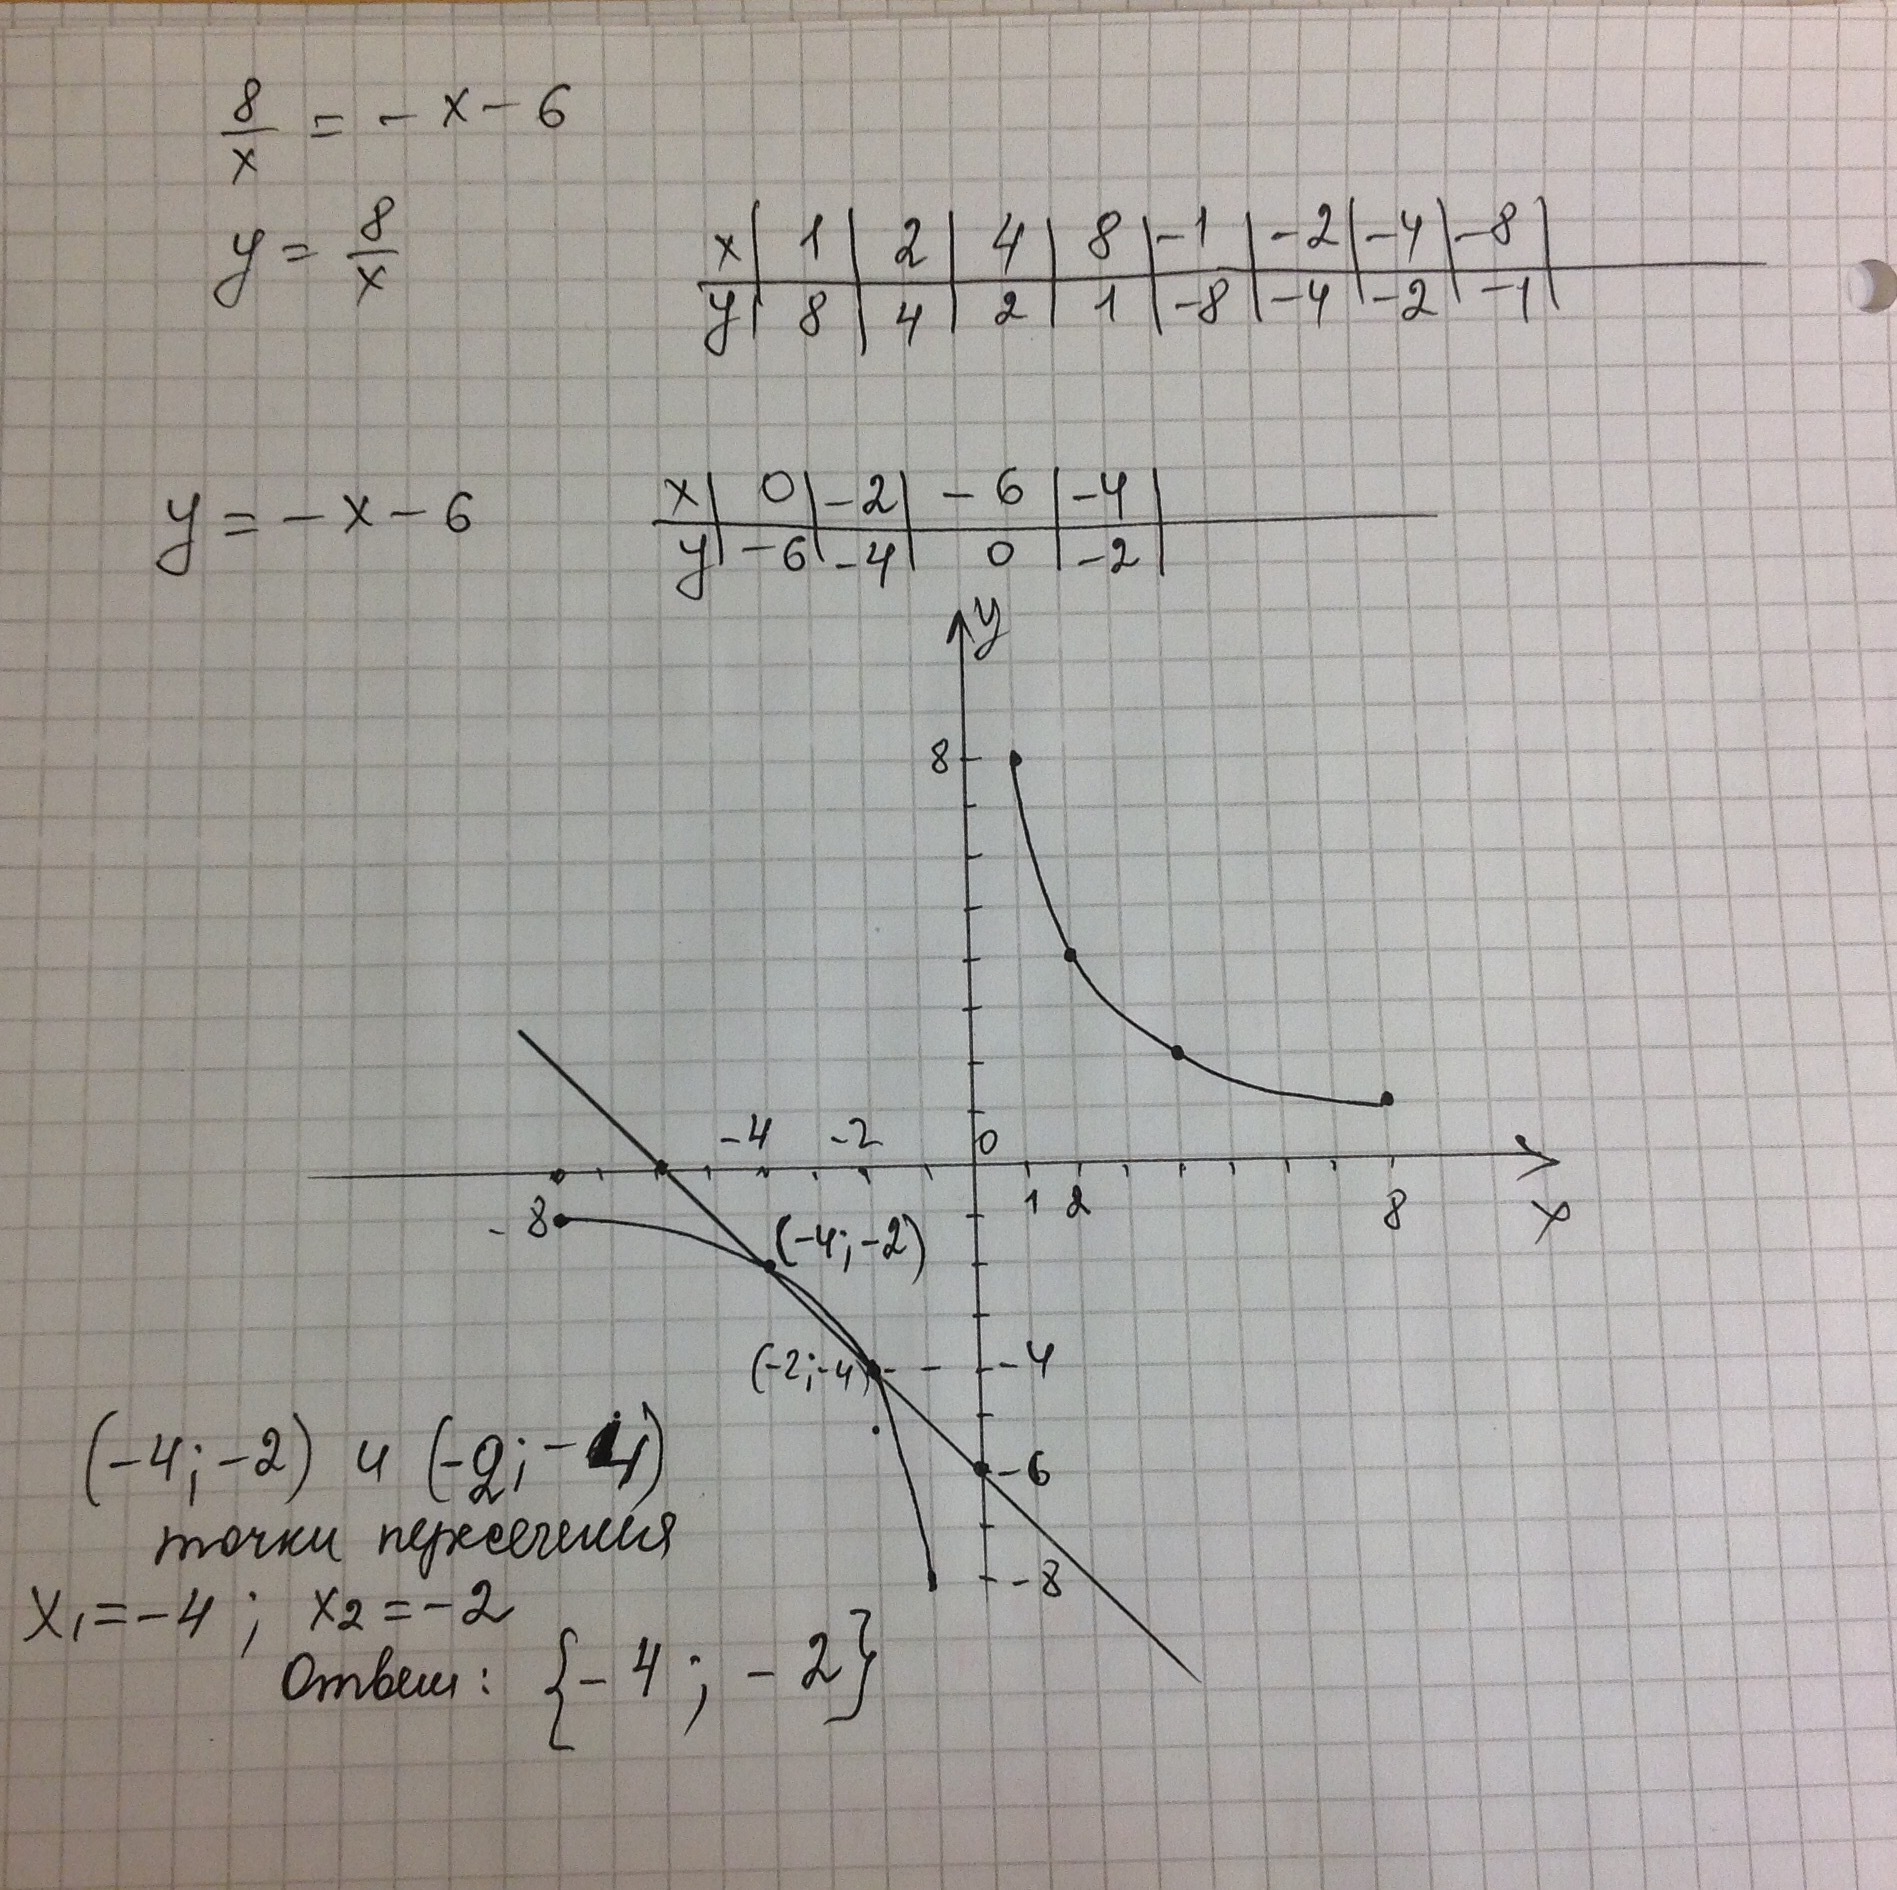 8/x = - x - 6
y = 8/x
x | 1 | 2 | 4 | 8 | -1 | -2 | -4 | -8 |
y | 8 | 4 | 2 | 1 | -8 | -4 | -2 | -1 |
y = - x - 6
x | 0 | -2 | -6 | -4 |
y | -6 | -4 | 0 | -2 |
y
8
-4 -2 0
-8 1 2 8 x
(-4; -2)
(-2; -4) -4
-6
-8
(-4; -2) и (-2; -4)
точки пересечения
x₁ = -4 ; x₂ = -2
Ответ: {-4 ; -2}